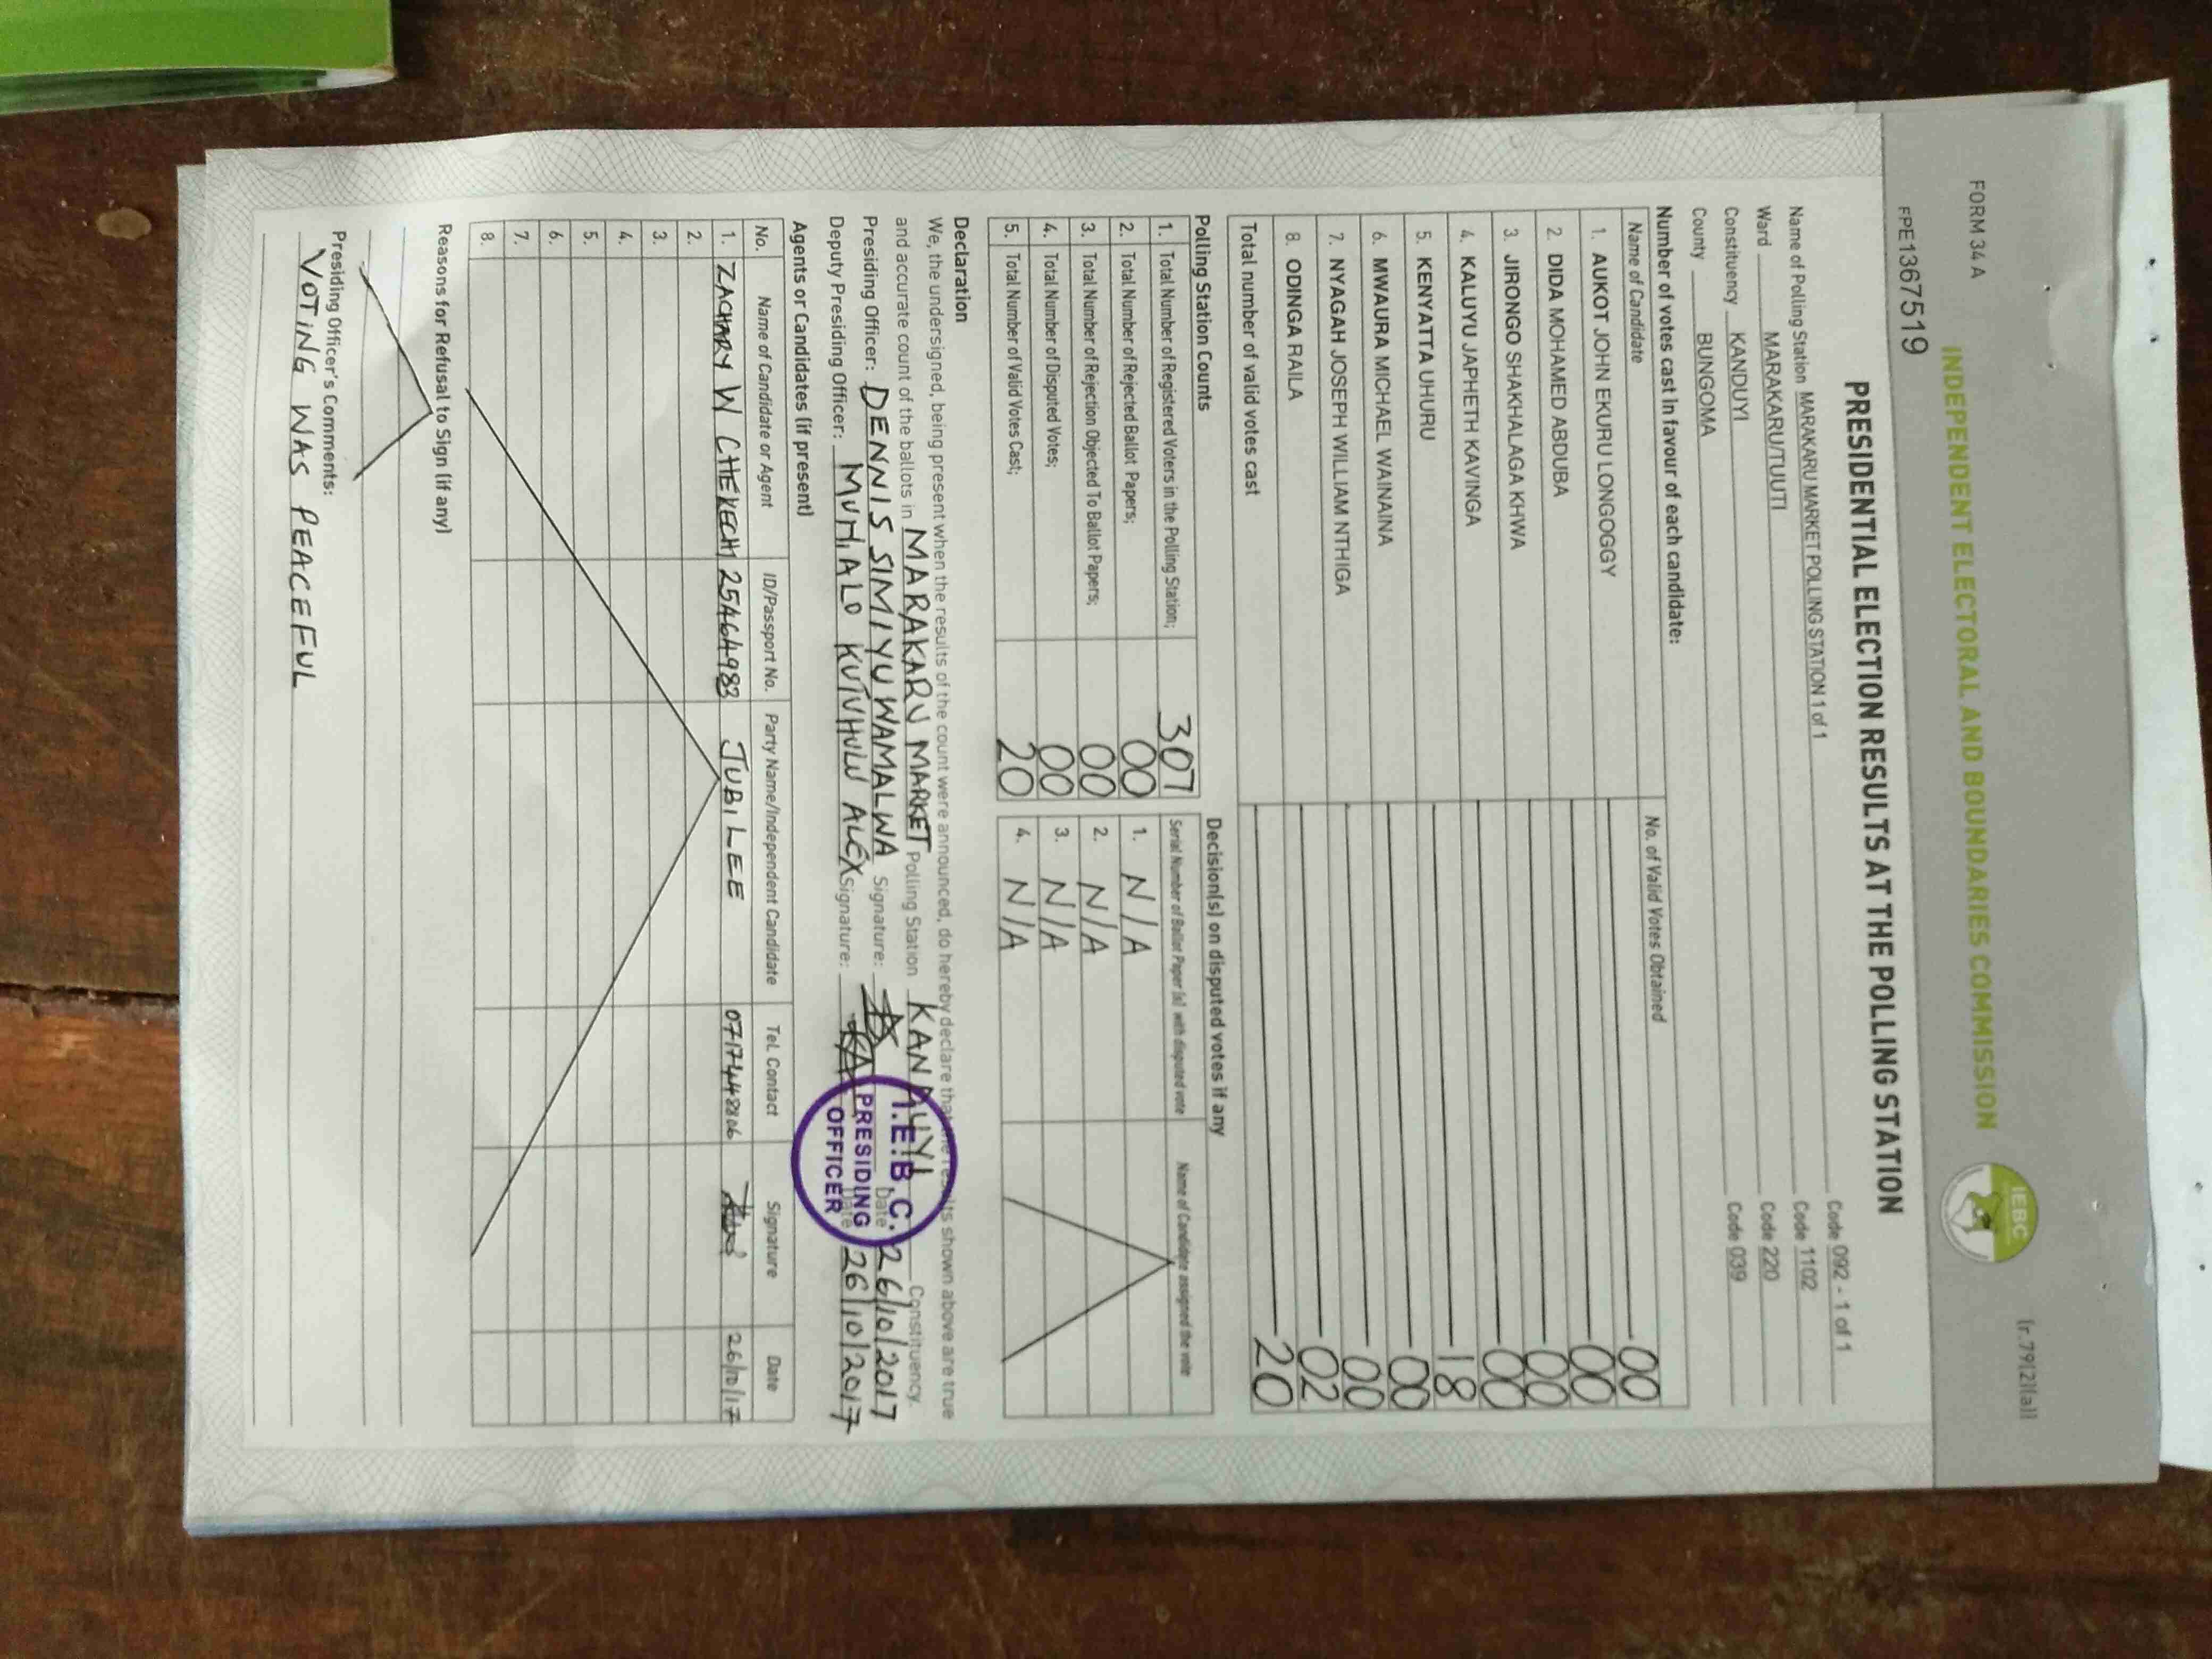 FORM 34 A
(r.79(2)(a))
INDEPENDENT ELECTORAL AND BOUNDARIES COMMISSION
IEBC
FPE1367519
PRESIDENTIAL ELECTION RESULTS AT THE POLLING STATION
Name of Polling Station MARAKARU MARKET POLLING STATION 1 of 1 Code 092 - 1 of 1
Ward MARAKARU/TUUTI Code 1102
Constituency KANDUYI Code 220
County BUNGOMA Code 039
Number of votes cast in favour of each candidate:
Name of Candidate No. of Valid Votes Obtained
1. AUKOT JOHN EKURU LONGOGGY 00
2. DIDA MOHAMED ABDUBA 00
3. JIRONGO SHAKHALAGA KHWA 00
4. KALUYU JAPHETH KAVINGA 00
5. KENYATTA UHURU 18
6. MWAURA MICHAEL WAINAINA 00
7. NYAGAH JOSEPH WILLIAM NTHIGA 00
8. ODINGA RAILA 02
Total number of valid votes cast 20
Polling Station Counts
1. Total Number of Registered Voters in the Polling Station; 307
2. Total Number of Rejected Ballot Papers; 00
3. Total Number of Rejection Objected To Ballot Papers; 00
4. Total Number of Disputed Votes; 00
5. Total Number of Valid Votes Cast; 20
Decision(s) on disputed votes if any
Serial Number of Ballot Paper (s) with disputed vote Name of Candidate assigned the vote
1. N/A
2. N/A
3. N/A
4. N/A
Declaration
We, the undersigned, being present when the results of the count were announced, do hereby declare that the results shown above are true
and accurate count of the ballots in MARAKARU MARKET Polling Station KANDUYI Constituency.
Presiding Officer: DENNIS SIMIYU WAMALWA Signature: Date 26/10/2017
Deputy Presiding Officer: MUHIALO KUTUHULU ALEX Signature: Date 26/10/2017
I.E.B.C.
PRESIDING
OFFICER
Agents or Candidates (if present)
No. Name of Candidate or Agent ID/Passport No. Party Name/Independent Candidate Tel. Contact Signature Date
1. ZACHARY W CHEKECH 25464983 JUBILEE 26/10/17
2.
3.
4.
5.
6.
7.
8.
Reasons for Refusal to Sign (if any)
Presiding Officer's Comments:
VOTING WAS PEACEFUL